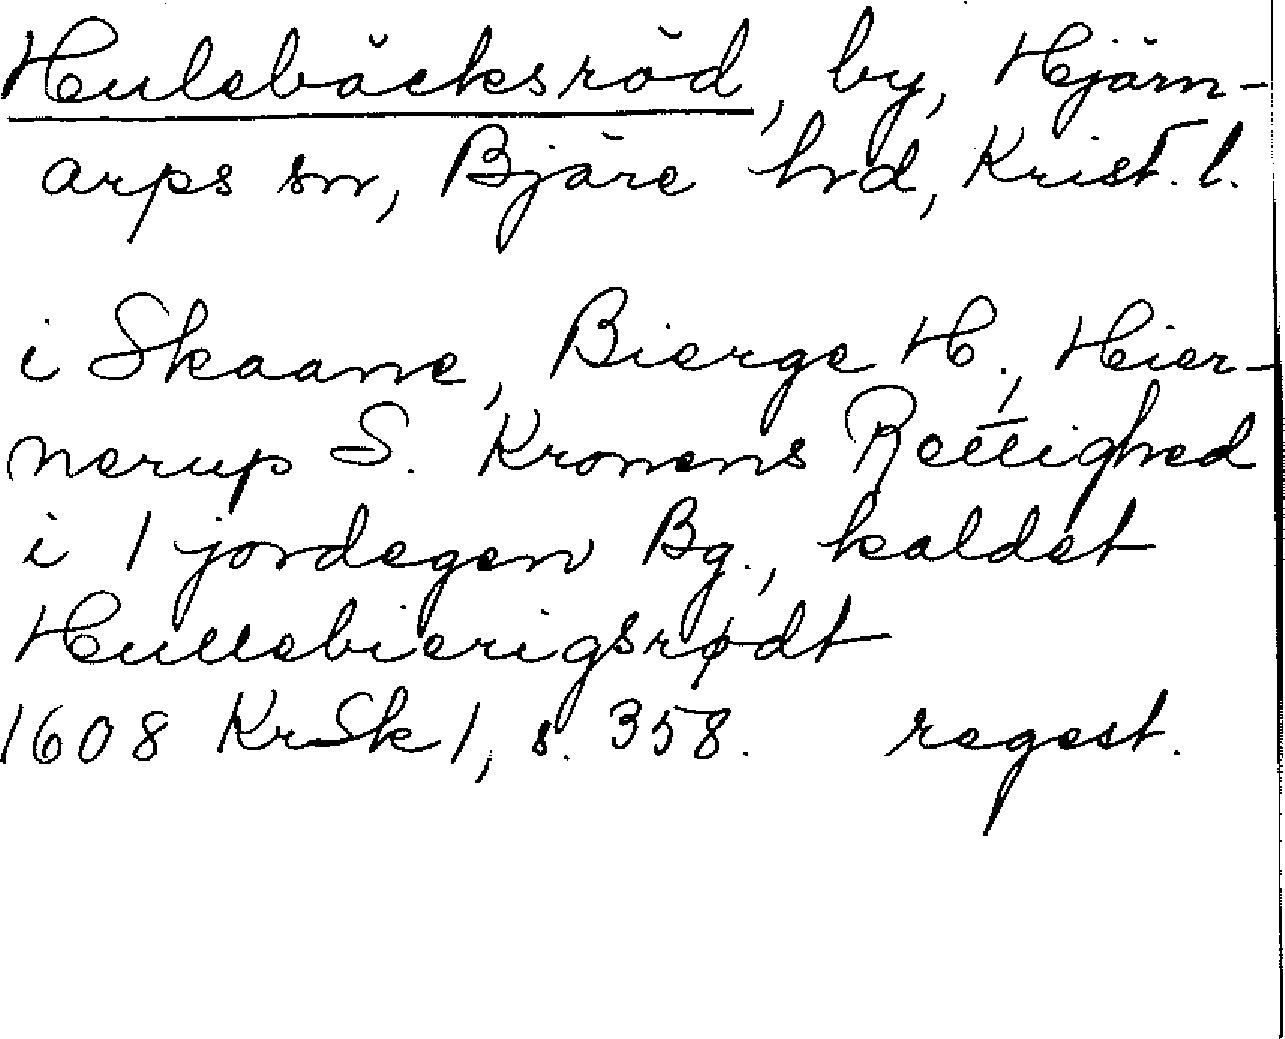 Hulebäcksröd, by, Hjärn-
arps sn, Bjäre hd, Krist. l.
i Skaane, Bierge H., Hier-
nerup S. Kronens Rettighed
i 1 jordegen Bg., kaldet
Hullebierigsrødt
1608 KrSk 1, s. 358. regest.